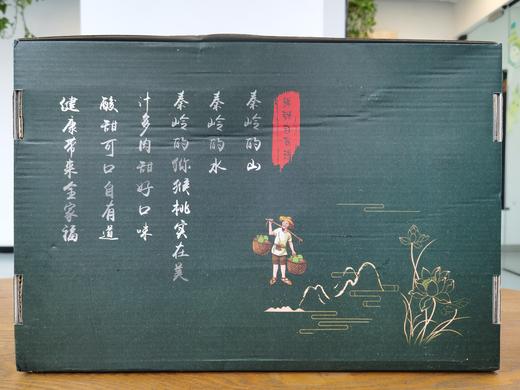 秦岭的山
秦岭的水
秦岭的猕猴桃实在美
汁多肉甜好口味
酸甜可口自有道
健康带来全家福